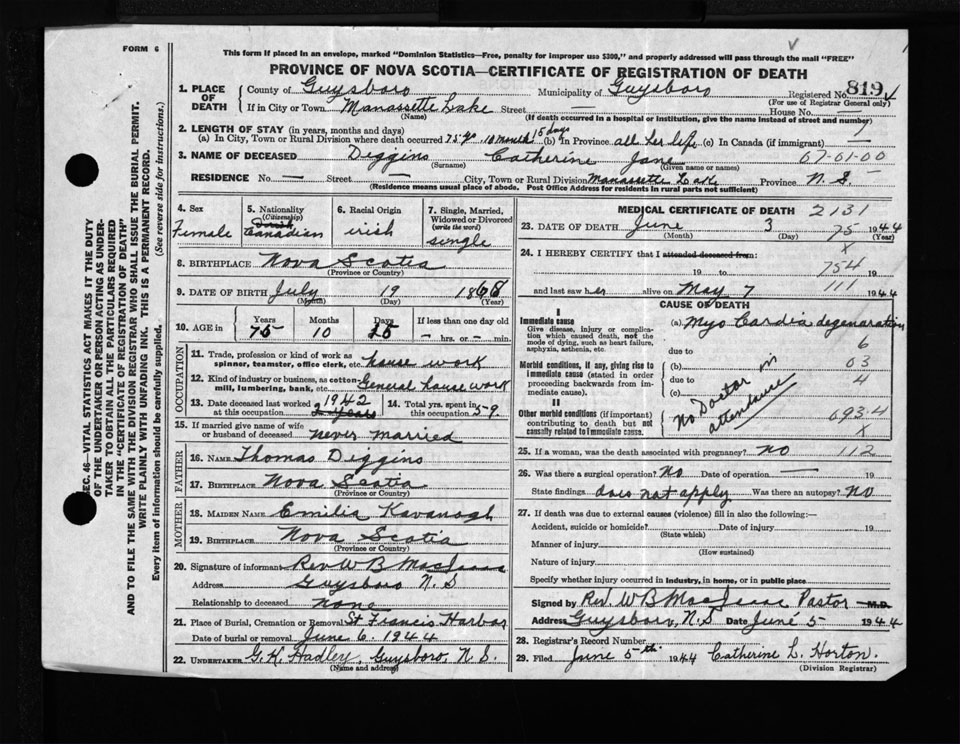 FORM 6
This form if placed in an envelope, marked "Dominion Statistics—Free, penalty for improper use $300," and properly addressed will pass through the mail "FREE"
PROVINCE OF NOVA SCOTIA—CERTIFICATE OF REGISTRATION OF DEATH
SEC. 46—VITAL STATISTICS ACT MAKES IT THE DUTY
OF THE UNDERTAKER OR PERSON ACTING AS UNDER-
TAKER TO OBTAIN ALL THE PARTICULARS REQUIRED
IN THE "CERTIFICATE OF REGISTRATION OF DEATH"
AND TO FILE THE SAME WITH THE DIVISION REGISTRAR WHO SHALL ISSUE THE BURIAL PERMIT.
WRITE PLAINLY WITH UNFADING INK. THIS IS A PERMANENT RECORD.
Every item of information should be carefully supplied. (See reverse side for instructions.)
1. PLACE OF DEATH County of Guysboro Municipality of Guysboro Registered No. 819
(For use of Registrar General only)
If in City or Town Manassette Lake Street — House No.
(Name) (If death occurred in a hospital or institution, give the name instead of street and number)
2. LENGTH OF STAY (in years, months and days)
(a) In City, Town or Rural Division where death occurred 75 yr 10 month 15 days (b) In Province all her life (c) In Canada (if immigrant) —
3. NAME OF DECEASED Diggins Catherine Jane 67-01-00
(Surname) (Given name or names)
RESIDENCE No. — Street — City, Town or Rural Division Manassette Lake Province N. S.
(Residence means usual place of abode. Post Office Address for residents in rural parts not sufficient)
4. Sex Female
5. Nationality (Citizenship) Irish Canadian
6. Racial Origin irish
7. Single, Married, Widowed or Divorced (write the word) single
8. BIRTHPLACE Nova Scotia
(Province or Country)
9. DATE OF BIRTH July 19 1868
(Month) (Day) (Year)
10. AGE in Years 75 Months 10 Days 15 If less than one day old — hrs. or — min.
OCCUPATION
11. Trade, profession or kind of work as spinner, teamster, office clerk, etc. house work
12. Kind of industry or business, as cotton mill, lumbering, bank, etc. General house work
13. Date deceased last worked at this occupation 1942
14. Total yrs. spent in this occupation 59
15. If married give name of wife or husband of deceased never married
FATHER
16. NAME Thomas Diggins
17. BIRTHPLACE Nova Scotia
(Province or Country)
MOTHER
18. MAIDEN NAME Emilia Kavanagh
19. BIRTHPLACE Nova Scotia
(Province or Country)
20. Signature of informant Rev. W B MacIsaac
Address Guysboro N. S
Relationship to deceased none
21. Place of Burial, Cremation or Removal St Francis Harbor
Date of burial or removal June 6. 1944
22. UNDERTAKER G. H. Hadley, Guysboro, N. S.
(Name and address)
MEDICAL CERTIFICATE OF DEATH 2131
23. DATE OF DEATH June 3 75 1944
(Month) (Day) (Year)
24. I HEREBY CERTIFY that I attended deceased from: X
19 to 754 19
and last saw her alive on May 7 111 1944
CAUSE OF DEATH
I
Immediate cause
Give disease, injury or complication which caused death, not the mode of dying, such as heart failure, asphyxia, asthenia, etc.
(a) Myo Cardia degenaration
due to 6
Morbid conditions, if any, giving rise to immediate cause (stated in order proceeding backwards from immediate cause).
(b) 03
due to 4
(c)
No Doctor in attendance
II
Other morbid conditions (if important) contributing to death but not causally related to immediate cause.
093.4
X
25. If a woman, was the death associated with pregnancy? no 112
26. Was there a surgical operation? No Date of operation — 19
State findings does not apply Was there an autopsy? No
27. If death was due to external causes (violence) fill in also the following:—
Accident, suicide or homicide? Date of injury 19
(State which)
Manner of injury
(How sustained)
Nature of injury
Specify whether injury occurred in industry, in home, or in public place
Signed by Rev. W B MacIsaac Pastor M.D.
Address Guysboro, N. S Date June 5 1944
28. Registrar's Record Number
29. Filed June 5th 1944 Catherine L. Horton.
(Division Registrar)